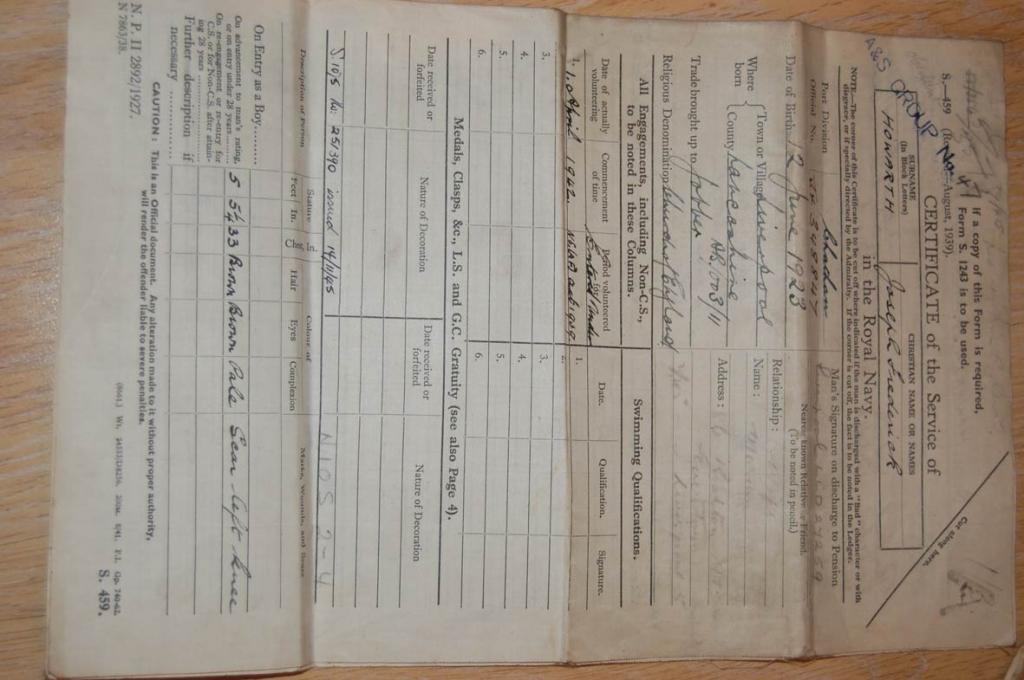 If a copy of this Form is required,
Form S. 1243 is to be used.
S.—459 August, 1939).
A&S GROUP No 4
CERTIFICATE of the Service of
SURNAME
(In Block Letters)
CHRISTIAN NAME OR NAMES
HOWARTH Joseph Frederick
in the Royal Navy.
Cut along here.
NOTE.—The corner of this Certificate is to be cut off where indicated if the man is discharged with a "Bad" character or with
disgrace, or if specially directed by the Admiralty. If the corner is cut off, the fact is to be noted in the Ledger.
Port Division London
Official No.
Man's Signature on discharge to Pension
Date of Birth 12 June 1923
Where born
Town or Village Liverpool
County Lancashire
Trade brought up to Jobber
Religious Denomination Church of England
Nearest known Relative or Friend.
(To be noted in pencil.)
Relationship:
Name:
Address:
All Engagements, including Non-C.S.,
to be noted in these Columns.
Date of actually
volunteering
Commencement
of time
Period volunteered
for
1. 1.0 April 1942.
2.
3.
4.
5.
6.
Swimming Qualifications.
Date. Qualification. Signature.
1.
2.
3.
4.
5.
6.
Medals, Clasps, &c., L.S. and G.C. Gratuity (see also Page 4).
Date received or
forfeited
Nature of Decoration
Date received or
forfeited
Nature of Decoration
S.105 No: 251390 issued 14/11/45
NIOS 2-4
Description of Person
Stature
Feet In.
Chest In.
Colour of
Hair Eyes Complexion
Marks, Wounds, and Scars
On Entry as a Boy
On advancement to man's rating,
or on entry under 28 years
5 5¼ 33 Brown Brown Pale Scar left knee
On re-engagement, or re-entry for
C.S. or for Non-C.S. after attain-
ing 28 years
Further description if
necessary
CAUTION: This is an Official document. Any alteration made to it without proper authority,
will render the offender liable to severe penalties.
N. P. II 2892/1927.
N 7863/38.
S. 459.